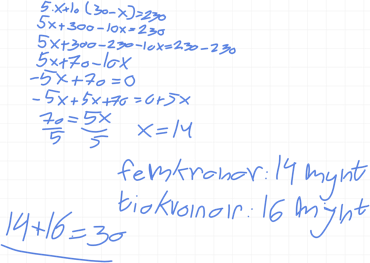 5·x+10(30-x)=230
5x+300-10x=230
5x+300-230-10x=230-230
5x+70-10x
-5x+70=0
-5x+5x+70=0+5x
70/5=5x/5 x=14
femkronor: 14 mynt
tiokronor: 16 mynt
14+16=30